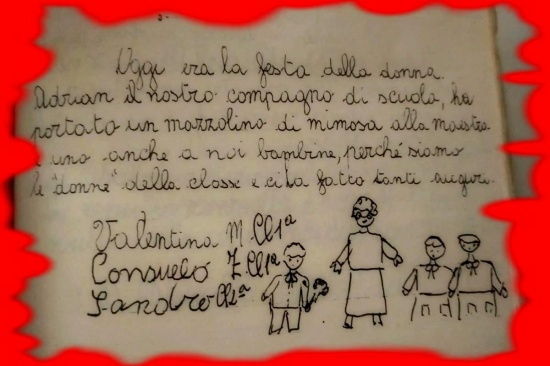 Oggi era la festa della donna.
Adrian il nostro compagno di scuola, ha
portato un mazzolino di mimosa alla maestra
e uno anche a noi bambine, perché siamo
le "donne" della classe e ci ha fatto tanti auguri.
Valentina M. Cl 1ª
Consuelo Z. Cl 1ª
Sandro Cl 2ª